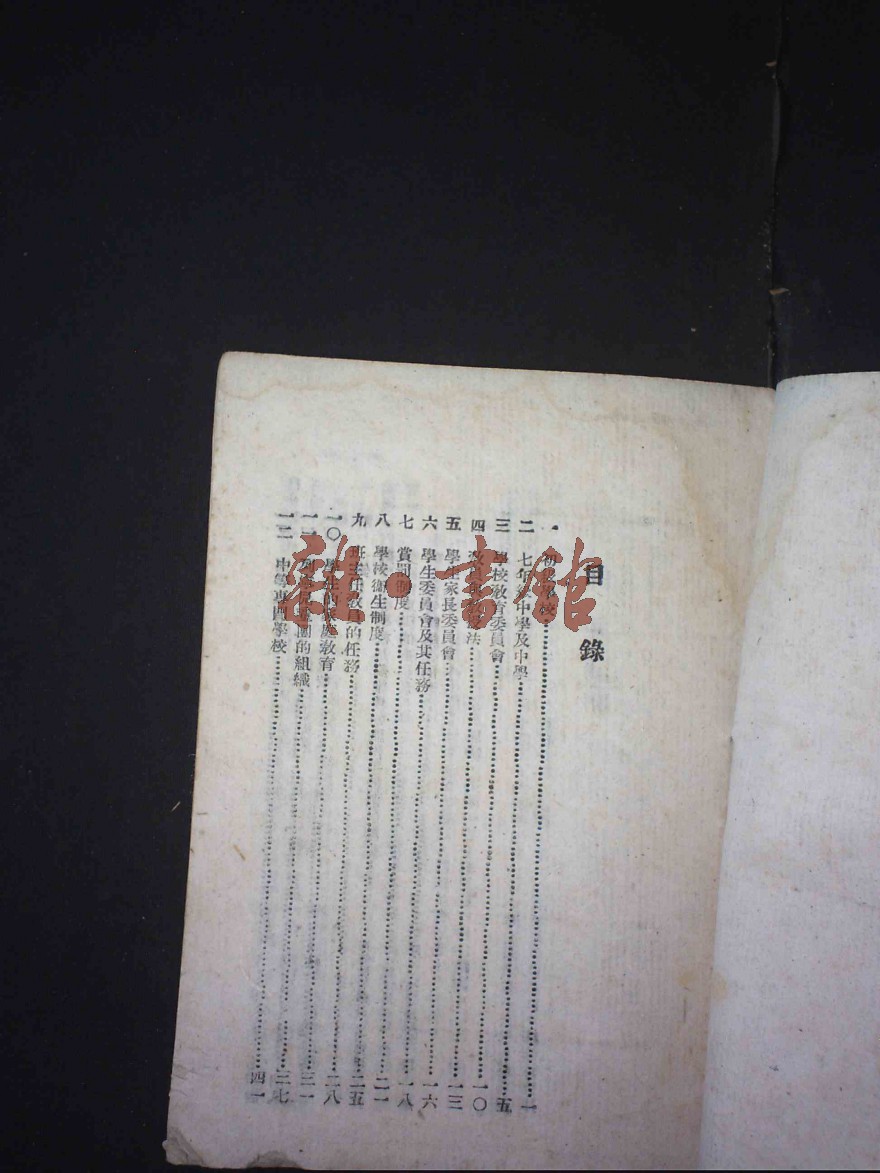 目錄
一 初 學校……一
二 七年制中學及中學……五
三 學校教育委員會……一〇
四 教員 法……一三
五 學生家長委員會……一六
六 學生委員會及其任務……一八
七 賞罰制度……二一
八 學校衛生制度……二五
九 班主任教員的任務……二八
一〇 學生的家庭教育……三一
一一 列 團的組織……三七
一二 中等專門學校……四一
雜·書館